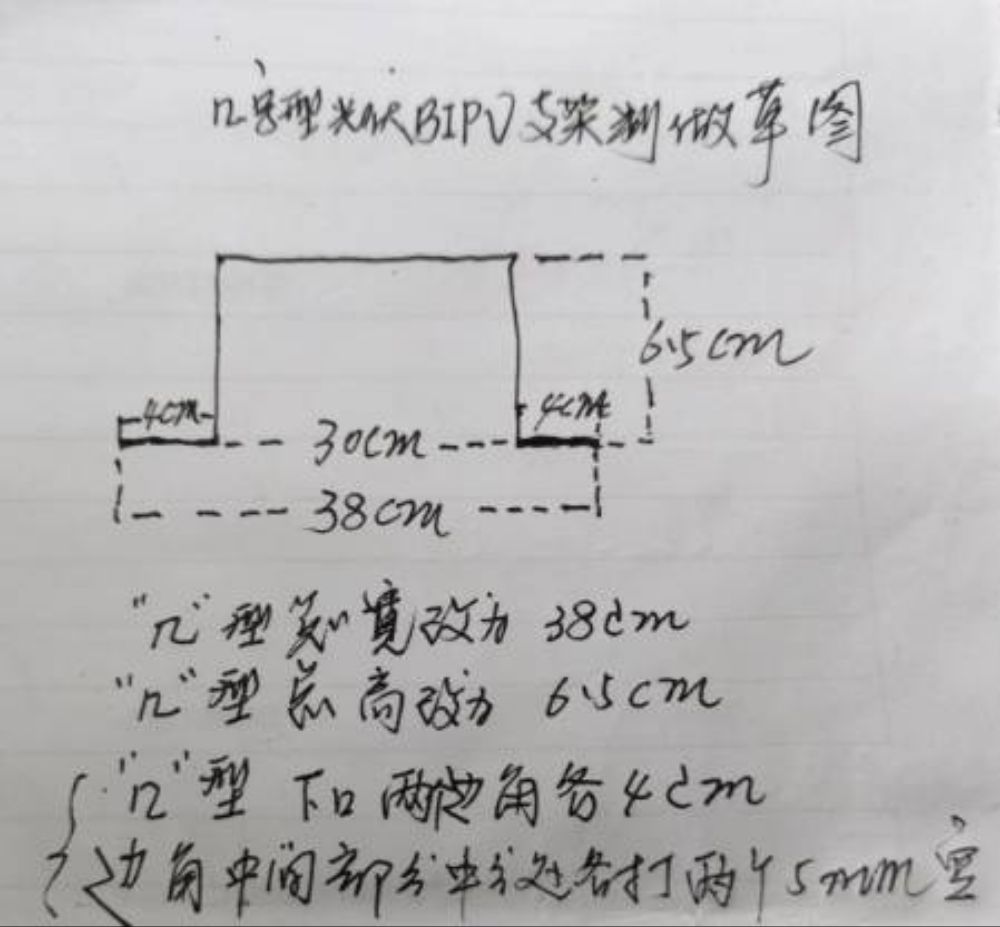 几字型光伏BIPV支架制做草图
6.5cm
4cm 4cm
30cm
38cm
"几"型总宽改为 38cm
"几"型总高改为 6.5cm
"几"型 下口两边角各4cm
边角中间部分中分处各打两个5mm空